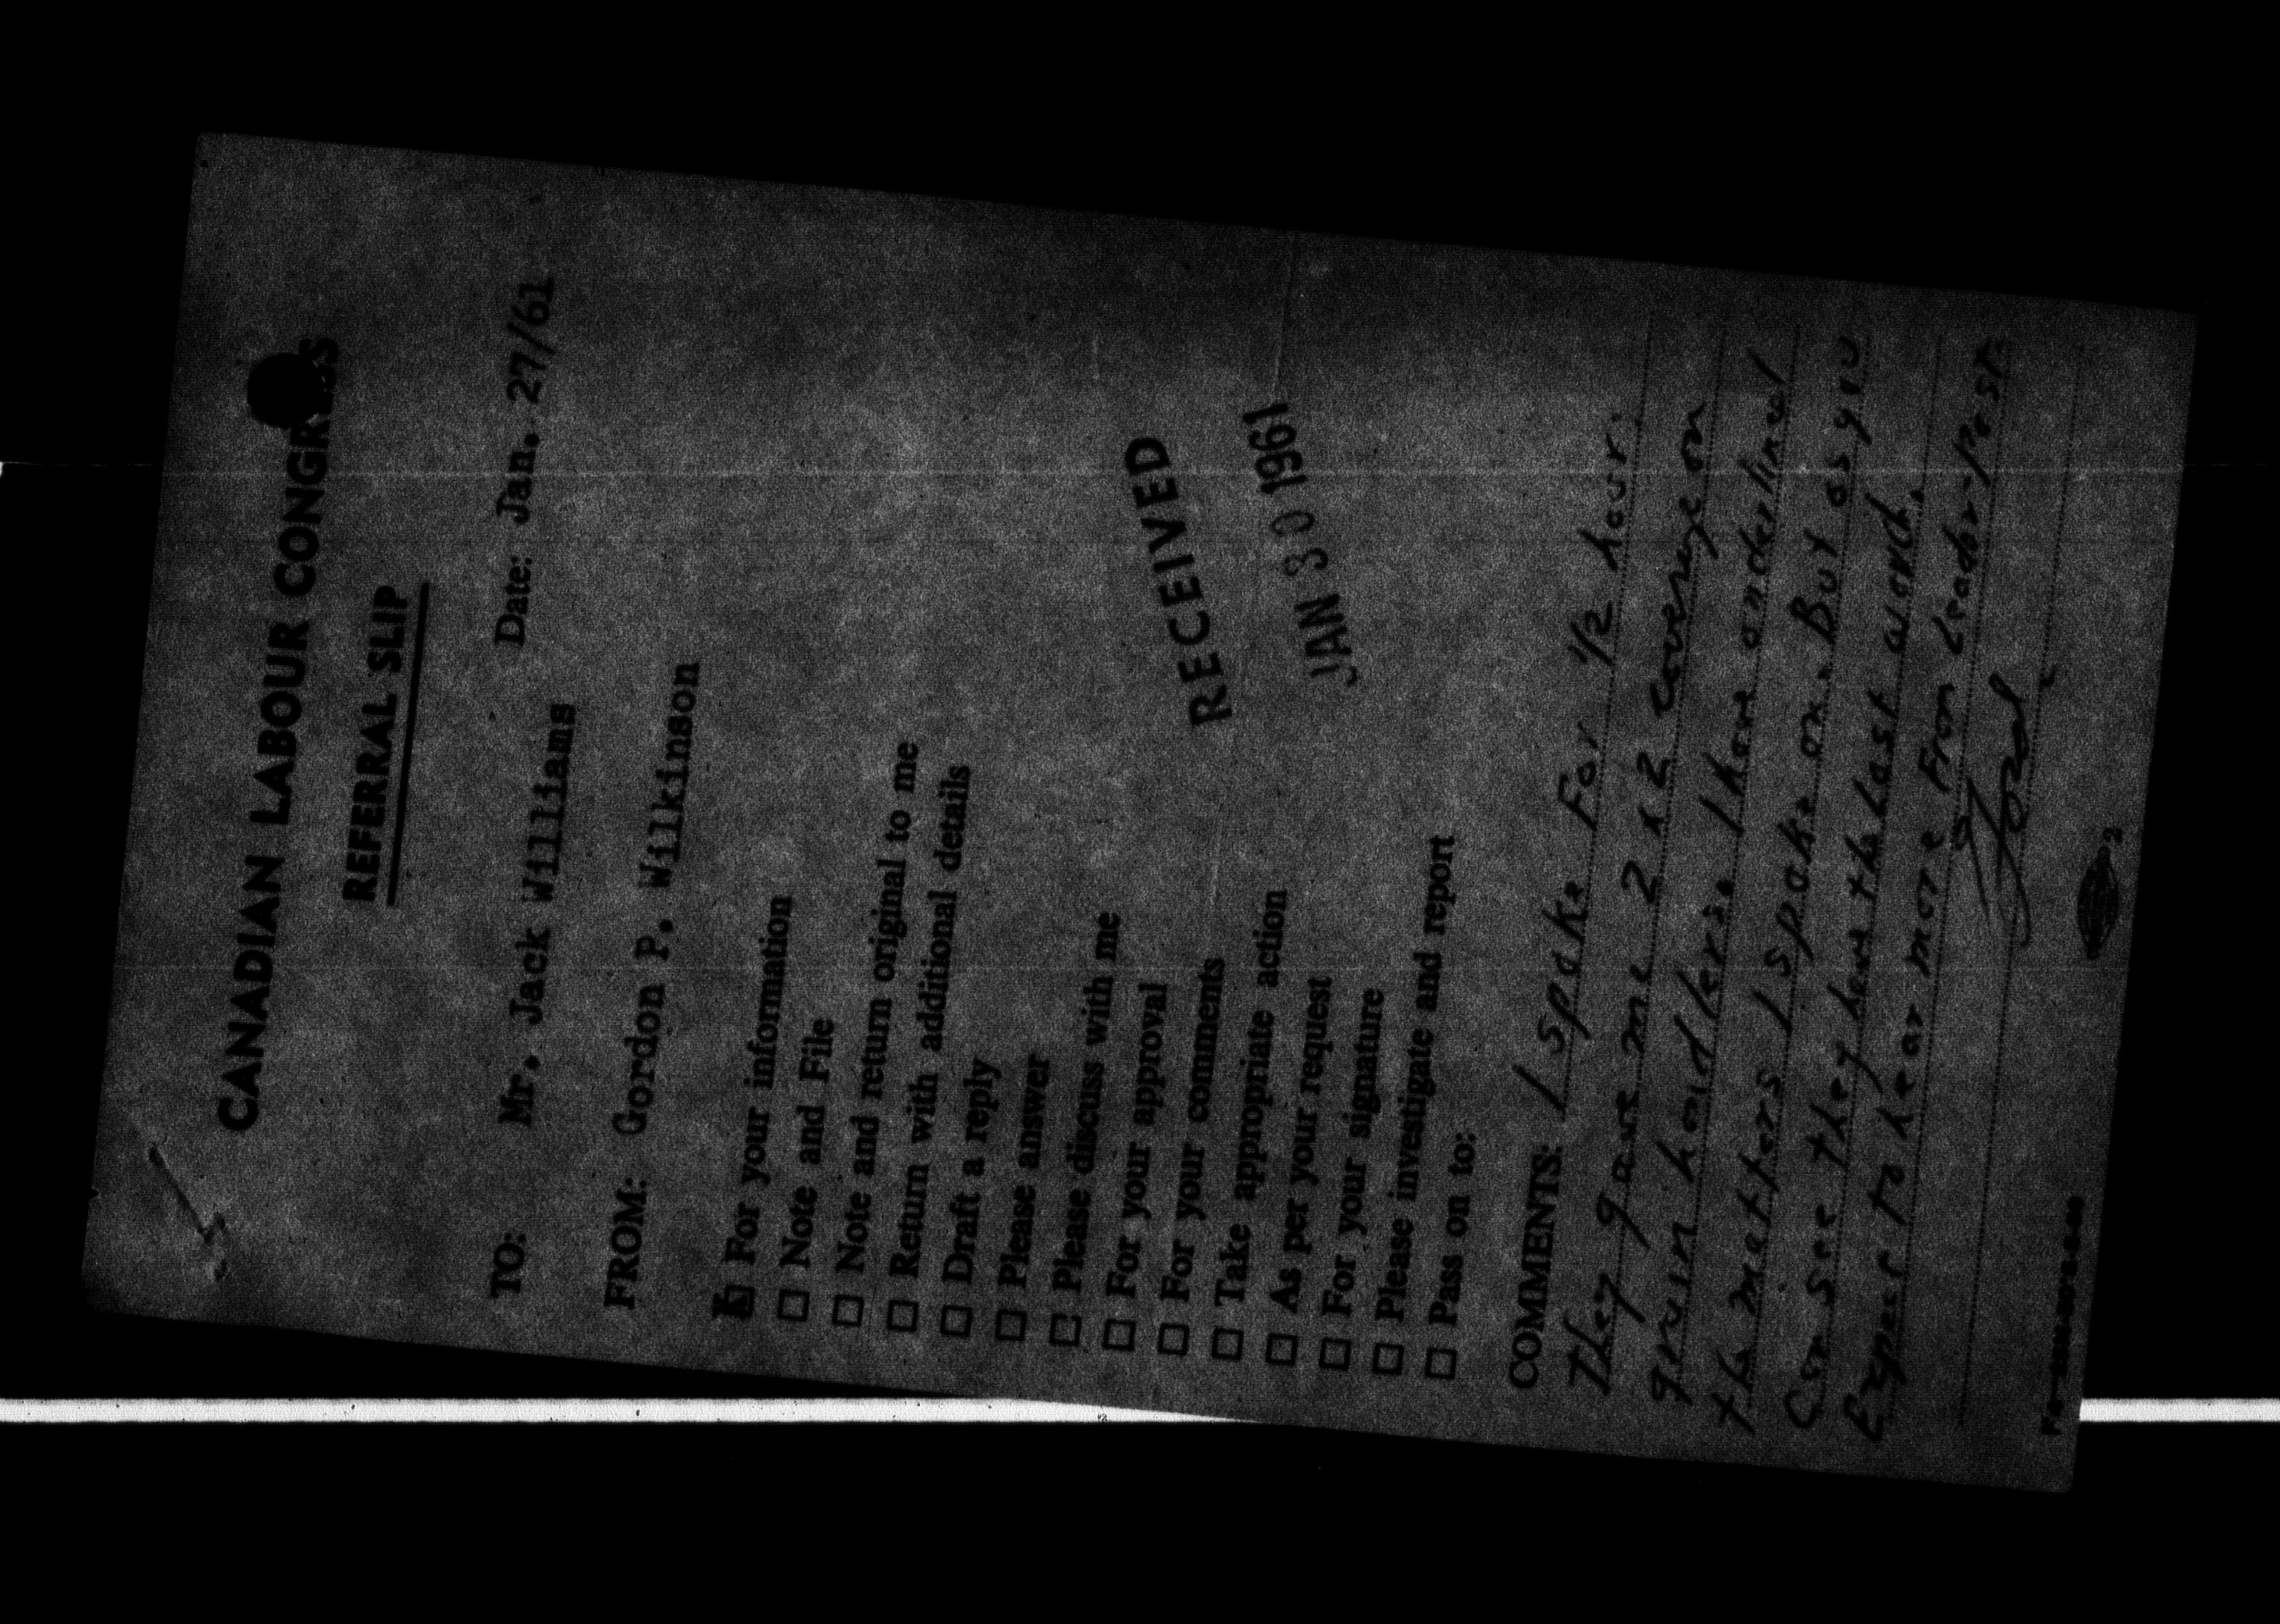 CANADIAN LABOUR CONGRESS
REFERRAL SLIP
Date: Jan. 27/61
TO: Mr. Jack Williams
FROM: Gordon P. Wilkinson
For your information
Note and File
Note and return original to me
Return with additional details
Draft a reply
Please answer
Please discuss with me
For your approval
For your comments
Take appropriate action
As per your request
For your signature
Please investigate and report
Pass on to:
RECEIVED
JAN 30 1961
COMMENTS: I spoke For 1/2 hour.
They gave me 2 x 2 coverage on
grain handlers. I have underlined
the matters I spoke on. But as you
can see they have the last word.
Expect to hear more From Leader-Post.
Gord
2